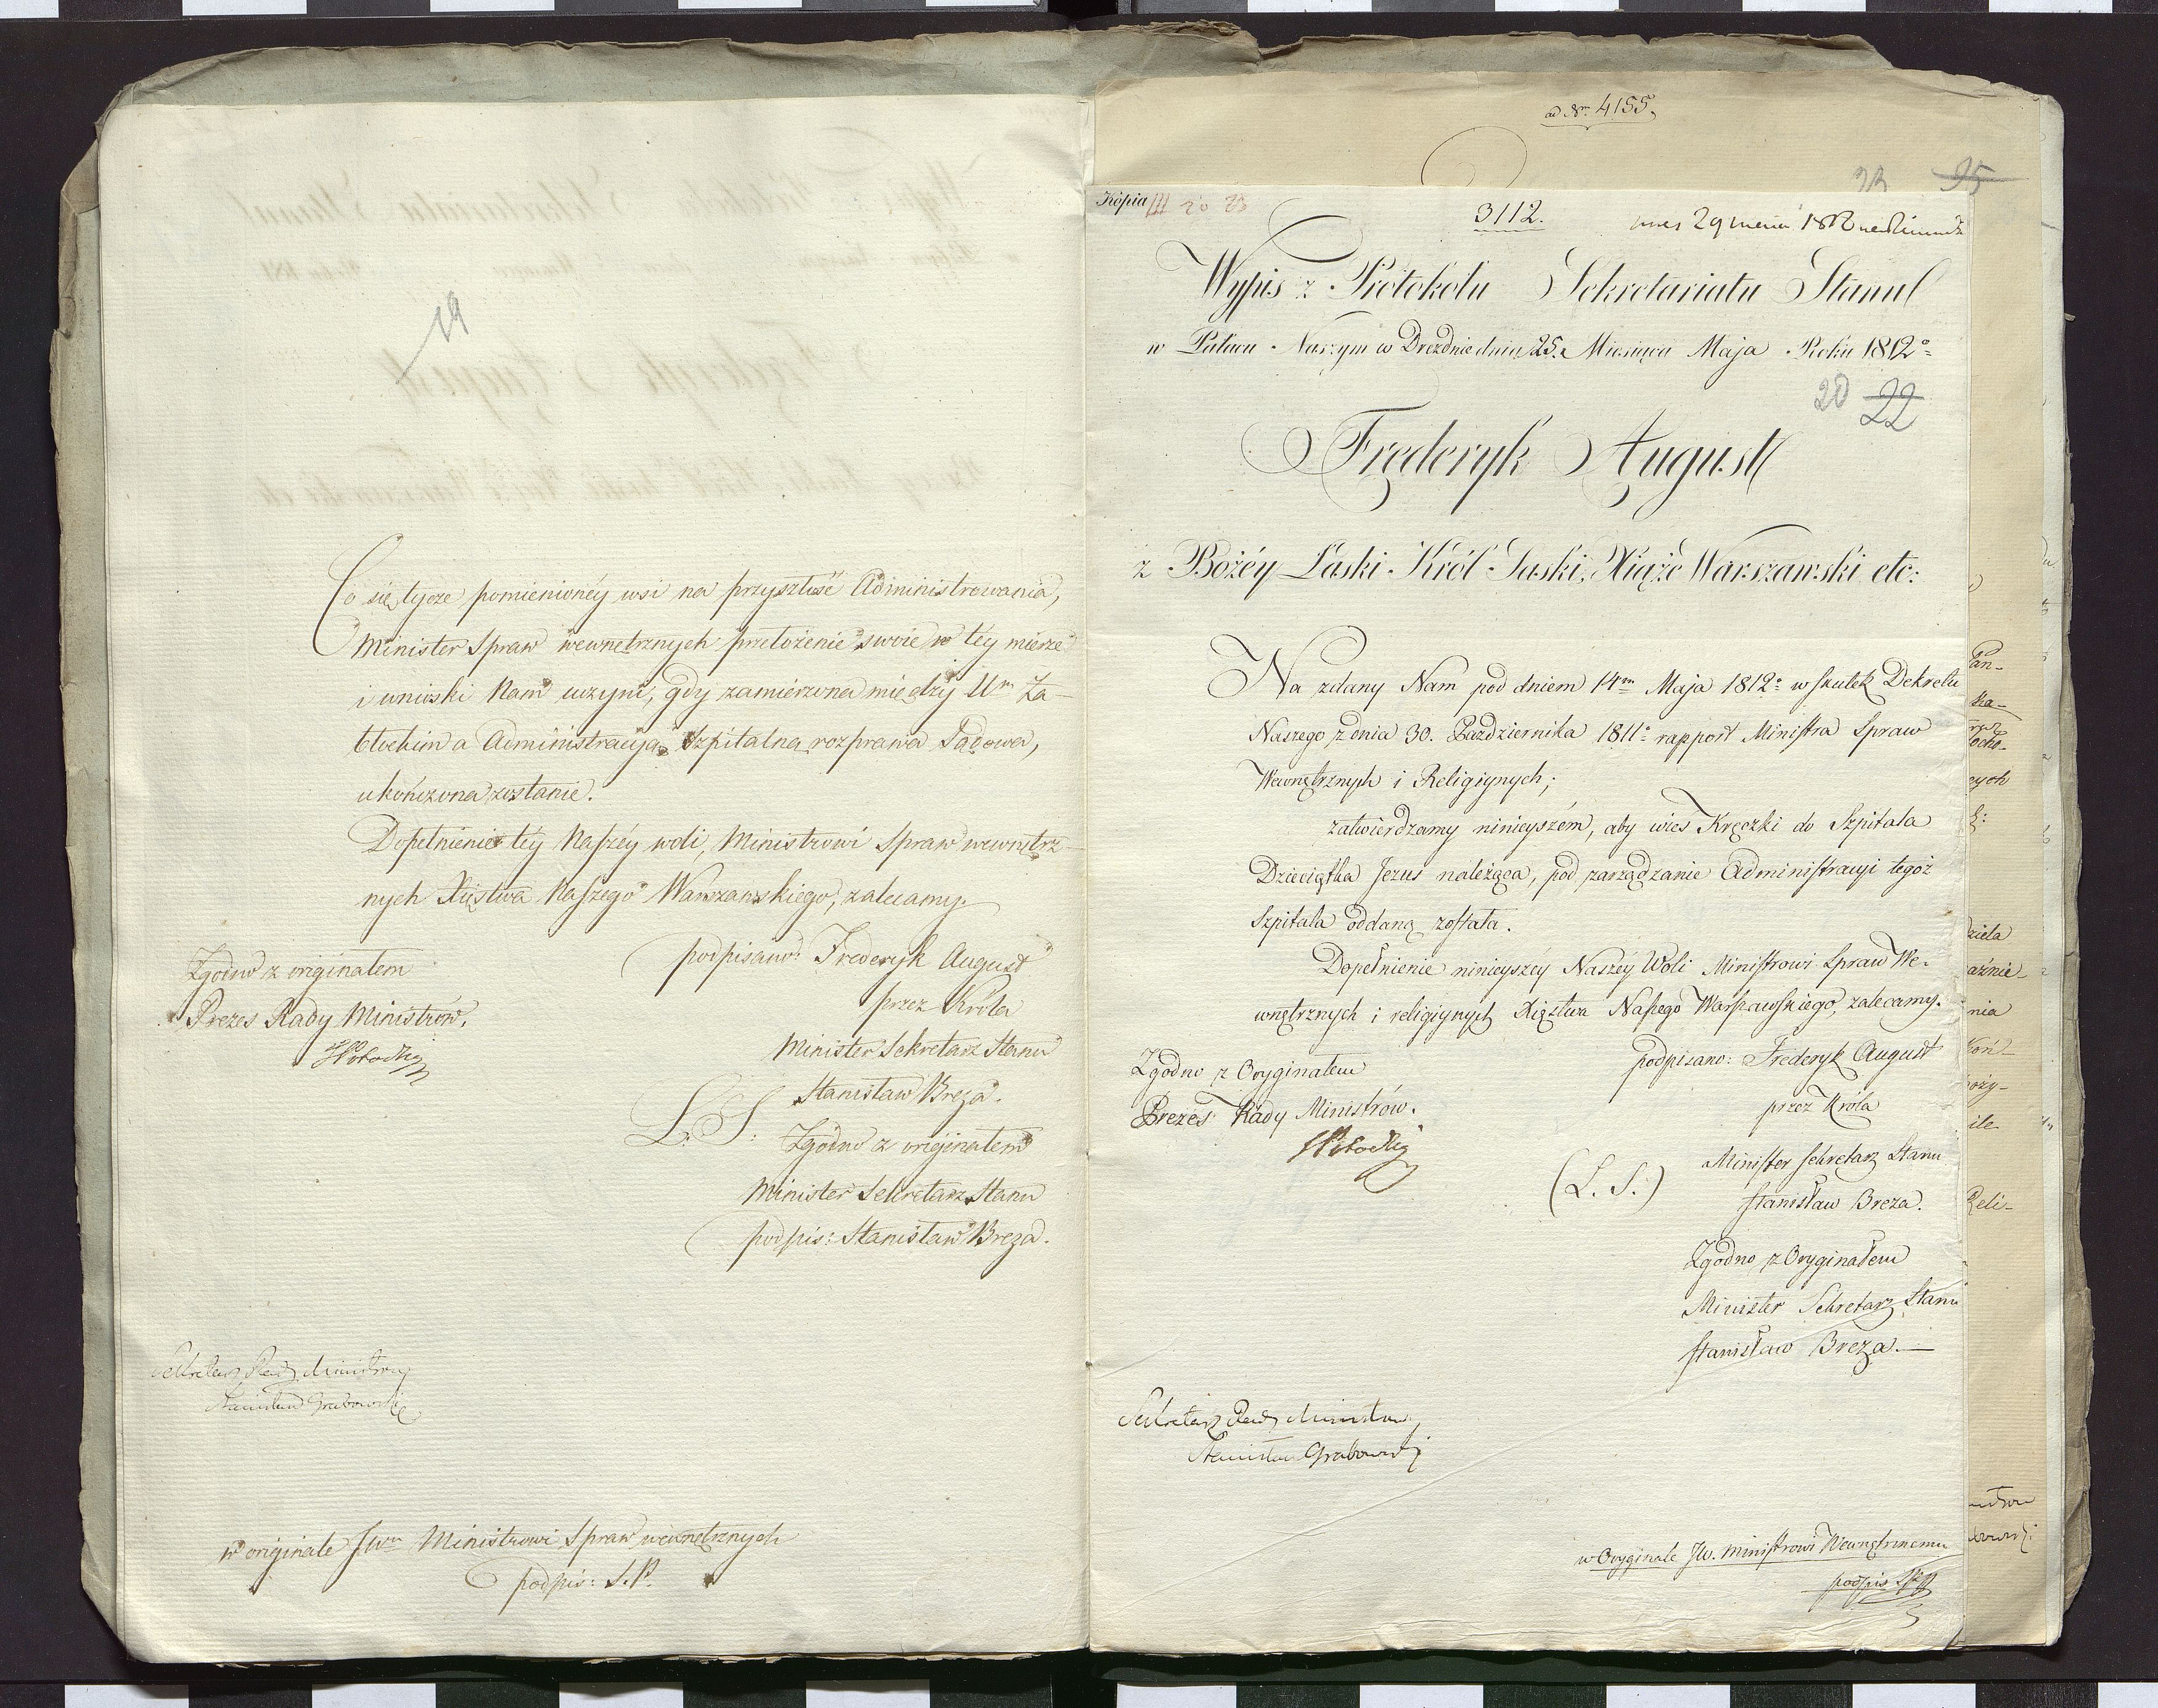 19
Co się tycze pomienionéy wsi na przyszłość Administrowania,
Minister Spraw wewnętrznych przełożenie swoie w téy mierze
i wnioski Nam uczyni, gdy zamierzona między Um Za-
błockim a Administracyją Szpitalną rozprawa Sądowa,
ukończona zostanie.
Dopełnienie téy Naszéy woli, Ministrowi Spraw wewnętrz-
nych Xięstwa Naszego Warszawskiego, zalecamy.
podpisano: Frederyk August
przez Króla
Minister Sekretarz Stanu
Stanisław Breza.
L. S.
Zgodno z originałem
Minister Sekretarz Stanu
podpis: Stanisław Breza.
Zgodno z originałem
Prezes Rady Ministrów.
Sekretarz Rady Ministrów
Stanisław Grabowski
w originale JWu Ministrowi Spraw wewnętrznych
podpis: S. P.
ad Nr. 4155.
95
Kopia
3112.
Wypis z Protokołu Sekretariatu Stanu
w Pałacu Naszym w Dreznie dnia 25. Miesiąca Maja Roku 1812o
20 22
Frederyk August
z Bożéy Łaski Król Saski, Xiąże Warszawski etc:
Na zdany Nam pod dniem 14m Maja 1812o w skutek Dekretu
Naszego z dnia 30. Października 1811o rapport Ministra Spraw
Wewnętrznych i Religiynych;
zatwierdzamy ninieyszém, aby wieś Kręczki do Szpitala
Dzieciątka Jezus należąca, pod zarządzanie Administracyi tegoż
Szpitala oddaną została.
Dopełnienie ninieyszey Naszéy Woli Ministrowi Spraw We-
wnętrznych i religiynych Xięstwa Naszego Warszawskiego, zalecamy.
podpisano: Frederyk August
przez Króla
Minister Sekretarz Stanu
(L. S.)
Stanisław Breza.
Zgodno z Oryginałem
Minister Sekretarz Stanu
Stanisław Breza.—
Zgodno z Oryginałem
Prezes Rady Ministrów.
Sekretarz Rady Ministrów
Stanisław Grabowski
w Oryginale JW. Ministrowi Wewnętrznemu
podpis